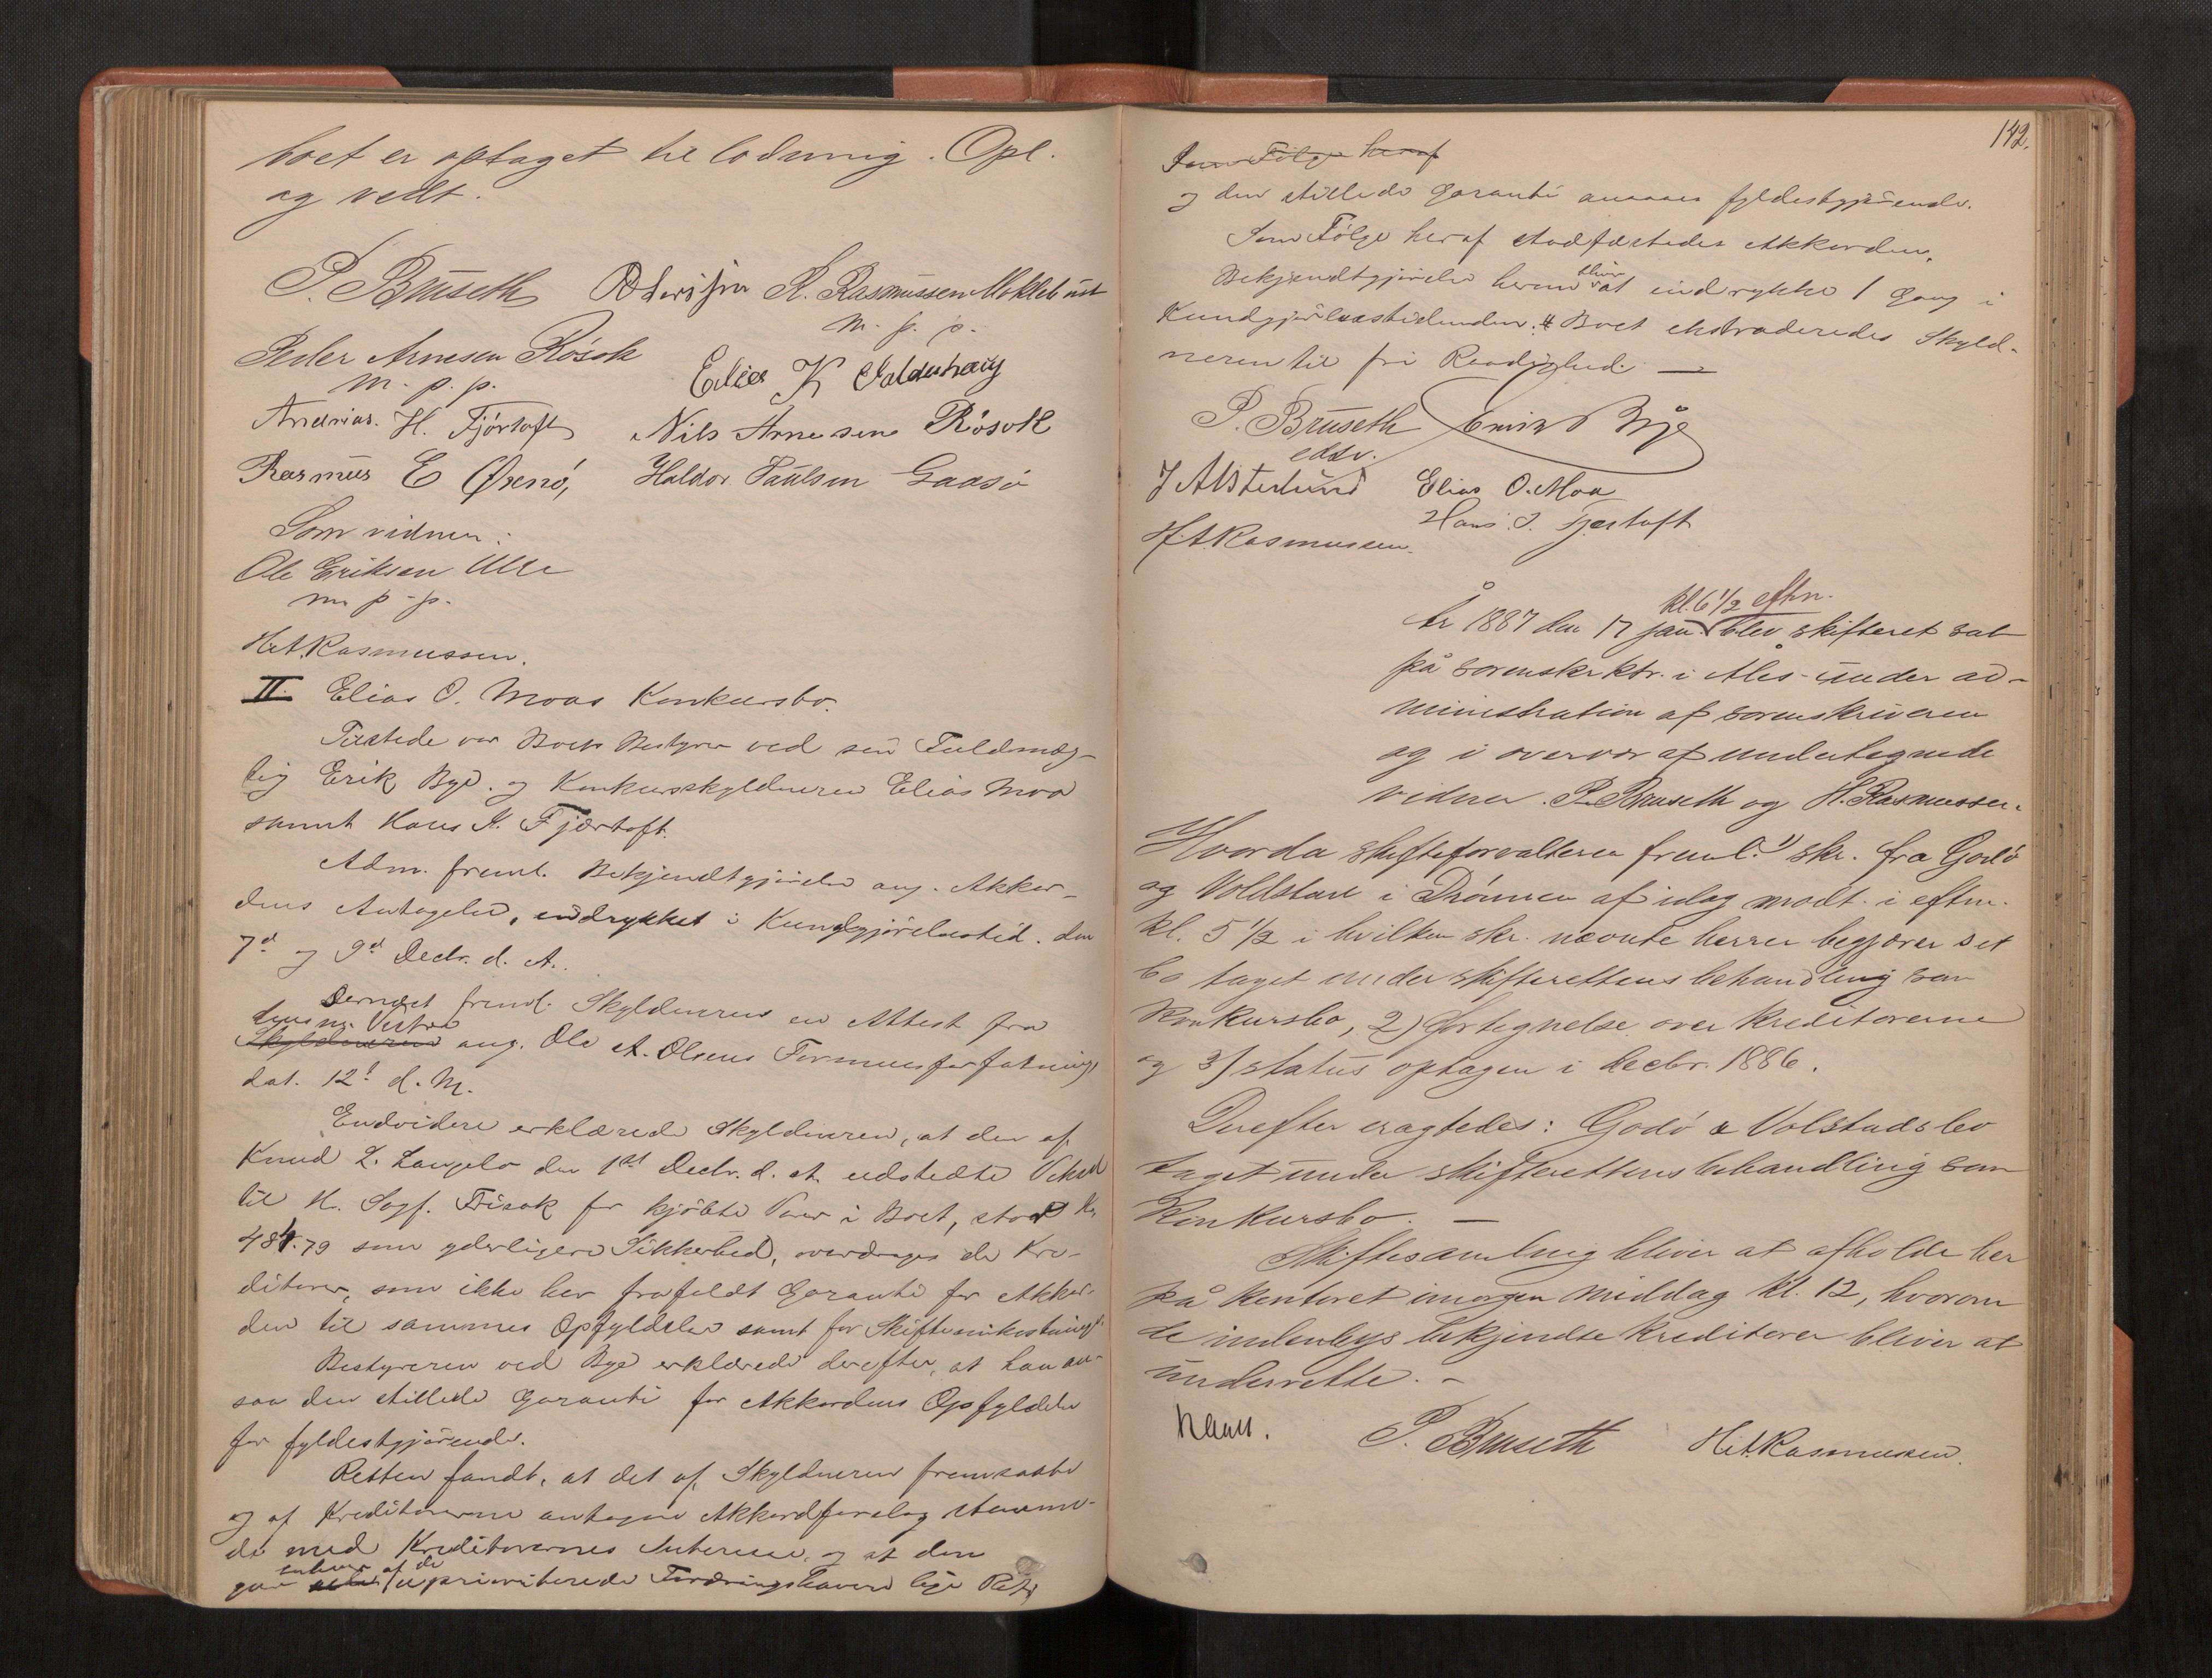 boet er optaget til lodning. Opl.
og vedt.
P. Bruseth R. Rasmussen Moklebust
m. p. p.
Peder Arnesen Rösok
m. p. p.
Elias K
Andreas. H. Fjörtoft Nils Arnesen Rösok
Rasmus E Oxnö, Haldor Paulsen Gaasö
Som vidner:
Ole Eriksen Ulle
m p. p.
H.A.Rasmussen.
II. Elias O. Moas Konkursbo.
Tilstede var Boets Bestyrer ved sin Fuldmæg-
tig Erik Bye. og Konkursskyldneren Elias Moa
samt Hans I. Fjærtoft.
Adm. freml. Bekjendtgjörelse ang. Akkor-
dens Antagelse, indrykket i Kundgjörelsestid. den
7d og 9d Decbr. d. A.
Dernæst freml. Skyldneren en Attest fra
Lensm. Vestre
Skyldneren ang. Ole A. Olsens Formuesforfatning,
dat. 12t d. M.
Endvidere erklærede Skyldneren, at den af
Knud L. Langelo den 1st Decbr. d. A. udstedte Vexel
til H. Sagf. Frisak for kjöbte Varer i Boet, stor Kr
484.79 som yderligere Sikkerhed, overdrages de Kre-
ditorer, som ikke har frafaldt Garanti for Akkor-
den til sammes Opfyldelse samt for Skifteomkostning.
Bestyreren ved Bye erklærede derefter, at han an-
saa den stillede Garanti for Akkordens Opfyldelse
for fyldestgjörende.
Retten fandt, at det af Skyldneren fremsatte
og af Kreditorerne antagne Akkordforslag stemme-
de med Kreditorernes Interesse, og at den
enhver af de
gav uprioriterede Fordringshavere lige Ret,
142.
Som Fölge heraf
og den stillede Garanti ansaaes fyldestgjörende.
Som Fölge heraf stadfæstedes Akkorden.
bliver
Bekjendtgjörelse herom at indrykke 1 Gang i
Kundgjörelsestidenden. Boet extraderedes Skyld-
neren til fri Raadighed. —
P. Bruseth Bye
edsv.
J Alsterlund Elias O. Moa
Hans I. Fjærtoft
H.A.Rasmussen.
kl. 6 1/2 eftm.
År 1887 den 17 jan. blev skifteret sat
på sorenskr ktr. i Ales- under ad-
ministration af sorenskriveren
og i overvær af undertegnede
vidner. P. Bruseth og H. Rasmussen.
Hvorda skifteforvalteren freml. 1) skr. fra Godö
og Voldstad i Drönnen af idag modt. i eftm.
kl. 5 1/2 i hvilken skr. nævnte herrer begjærer sit
bo taget under skifterettens behandling som
konkursbo, 2) Fortegnelse over kreditorerne
og 3) status optagen i decbr. 1886.
Derefter eragtedes: Godö & Volstads bo
taget under skifterettens behandling som
Konkursbo. —
Skiftesamling bliver at afholde her
på kontoret imorgen middag kl. 12, hvorom
de indenbys bekjendte kreditorer bliver at
underrette. –
P. Bruseth H.A.Rasmussen.